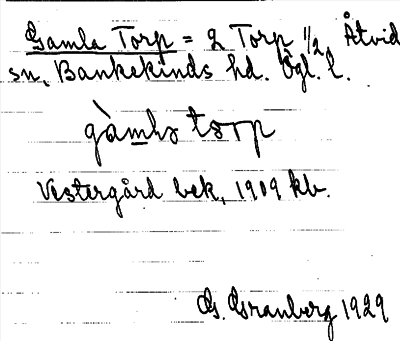 Gamla Torp = 2 Torp 1/2, Åtvid
sn, Bankekinds hd. Ögl. l.
gàmlɜ tɔrp
Vestergård bek, 1909 kb.
G. Granberg 1929